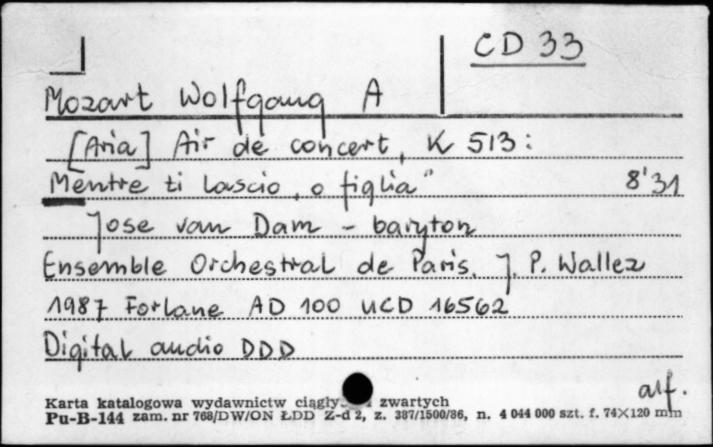 CD 33
Mozart Wolfgang A
[Aria] Air de concert, K 513:
Mentre ti lascio, o figlia" 8'31
Jose van Dam - baryton
Ensemble Orchestral de Paris, J. P. Wallez
1987 Forlane AD 100 UCD 16562
Digital audio DDD
alf.
Karta katalogowa wydawnictw zwartych
Pu-B-144 zam. nr 768/DW/ON ŁDD Z-d 2, z. 387/1500/86, n. 4 044 000 szt. f. 74×120 mm